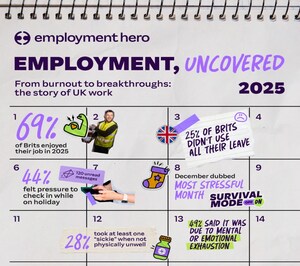 employment hero
EMPLOYMENT, UNCOVERED
From burnout to breakthroughs:
the story of UK work
2025
1
2
3
4
69%
of Brits enjoyed
their job in 2025
25% OF BRITS
DIDN'T USE
ALL THEIR LEAVE
6
7
8
9
44%
felt pressure to
check in while
on holiday
120 unread
messages
December dubbed
MOST STRESSFUL
MONTH
SURVIVAL
MODE
ON
11
12
13
14
28%
took at least one
"sickie" when not
physically unwell
49% SAID IT WAS
DUE TO MENTAL
OR EMOTIONAL
EXHAUSTION